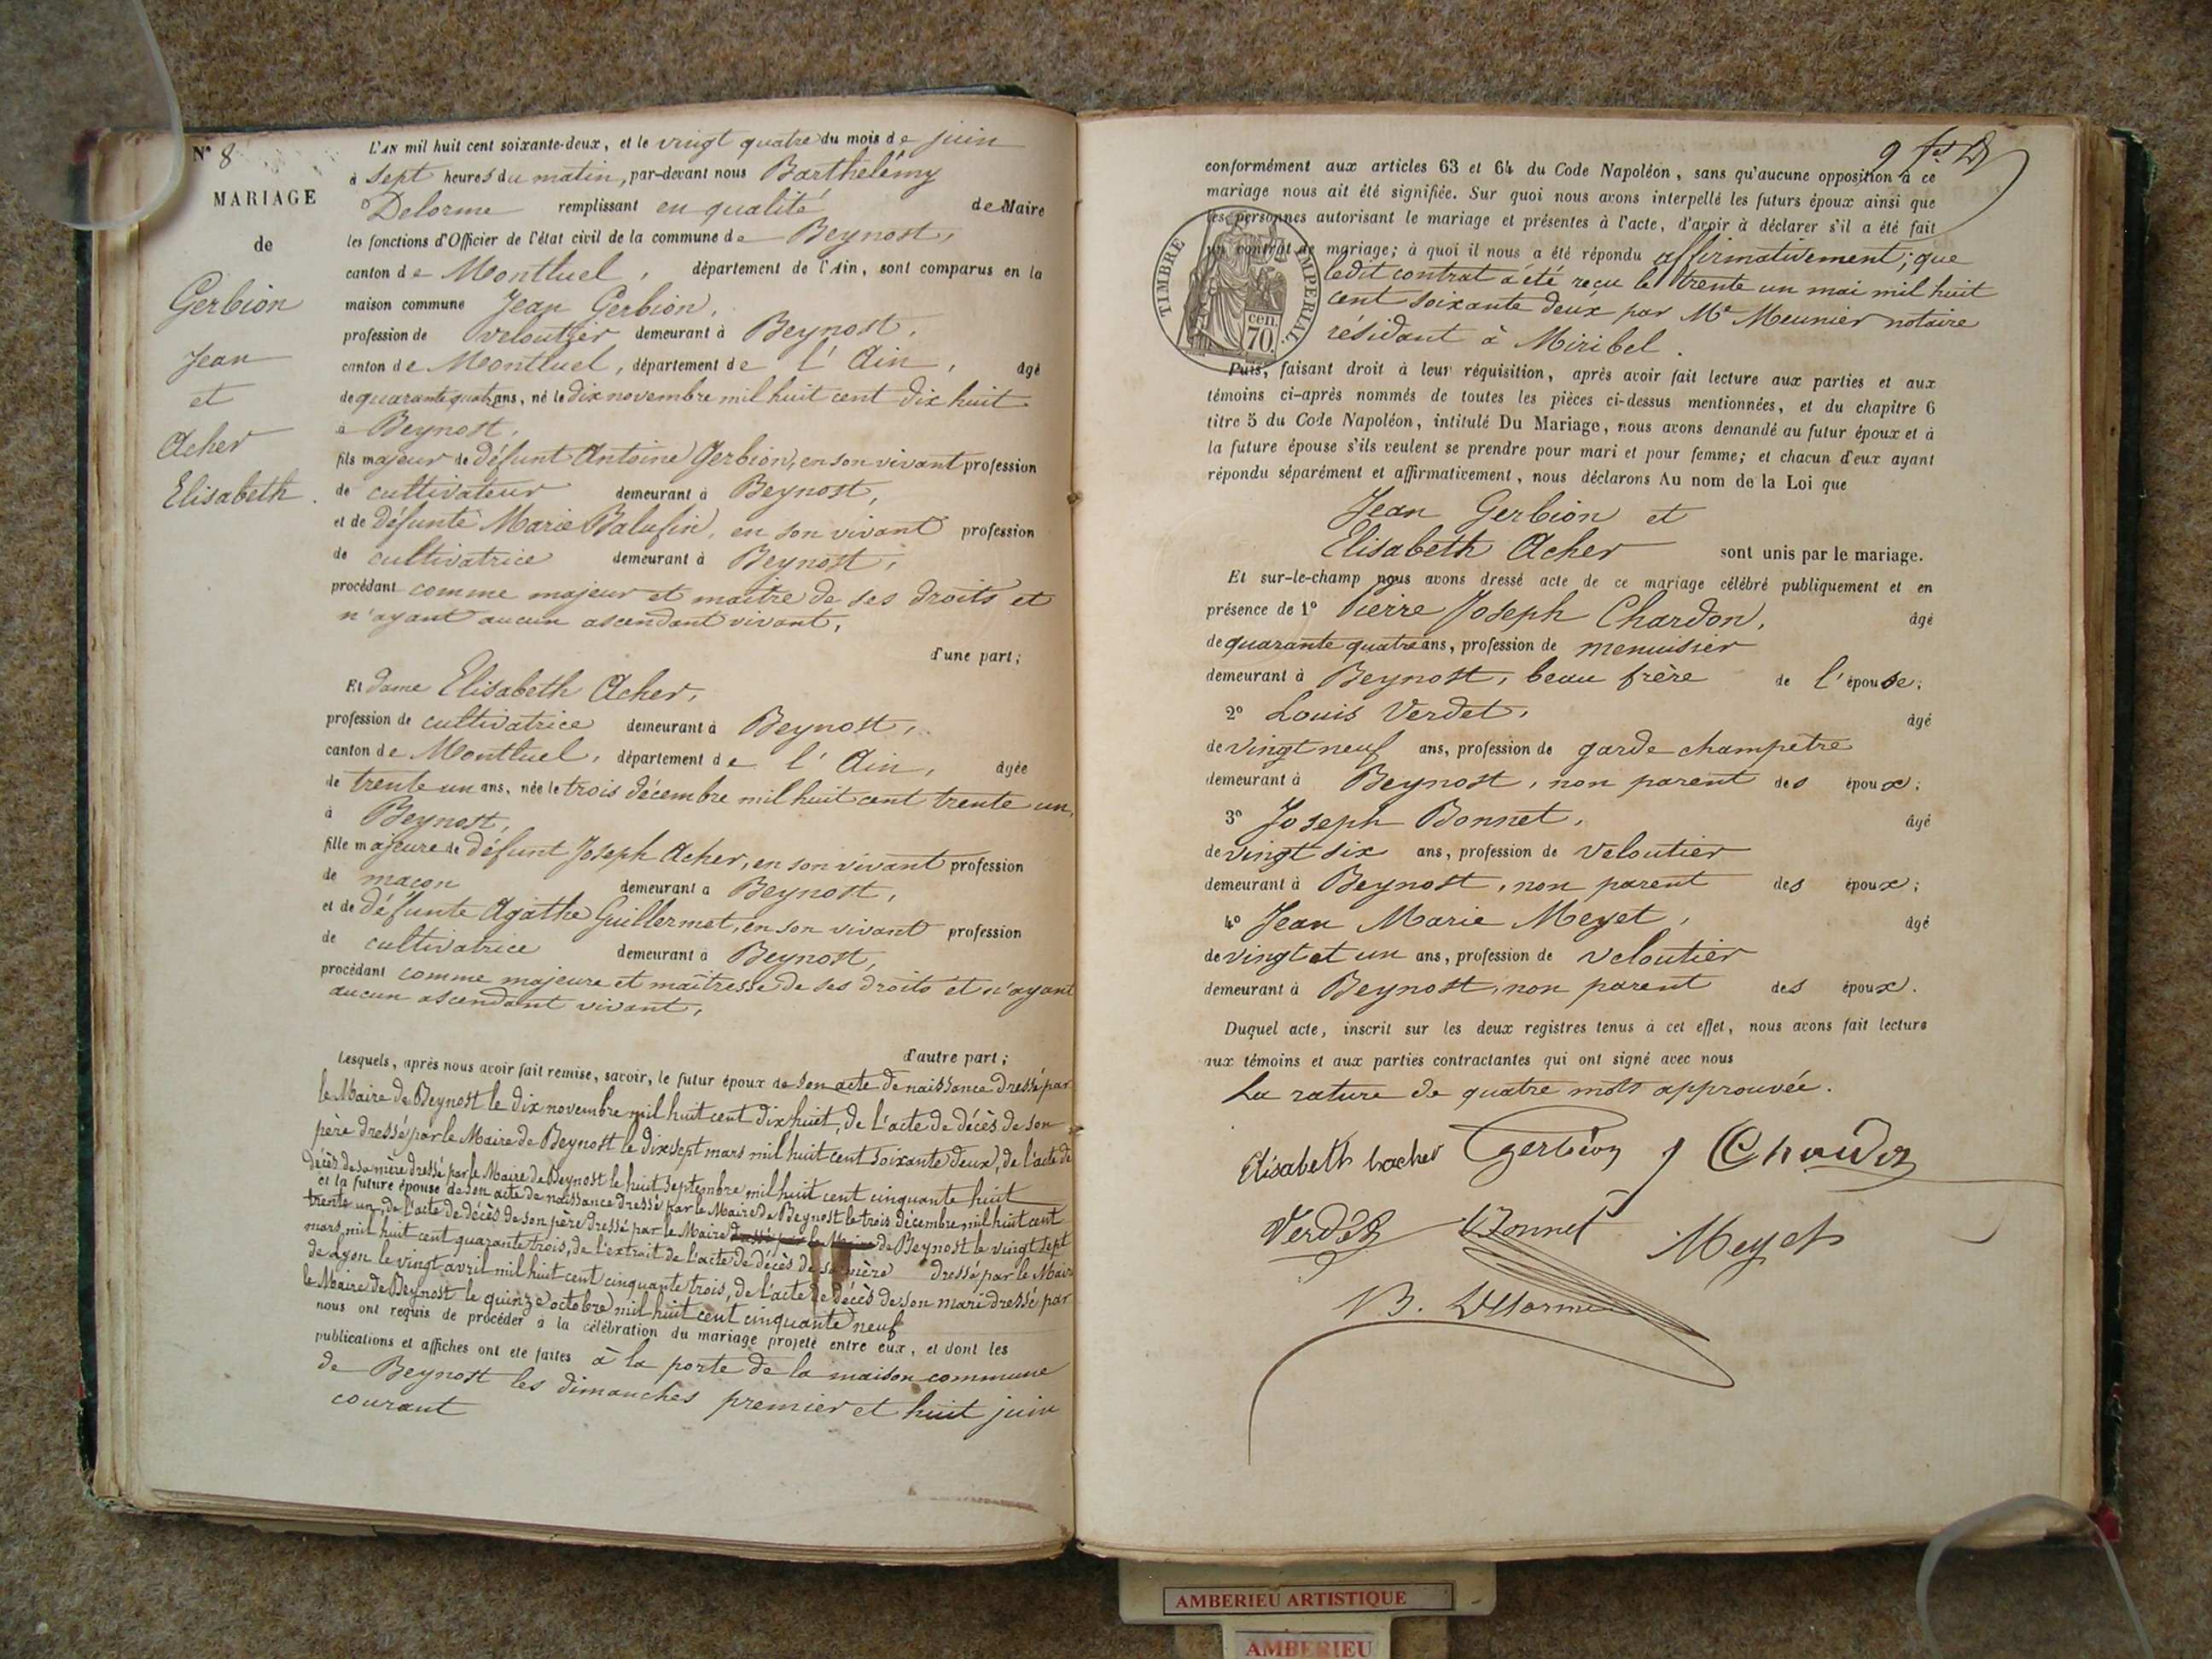 N° 8
MARIAGE
de
Gerbion
Jean
et
Acher
Elisabeth.
L'AN mil huit cent soixante-deux, et le vingt quatre du mois de juin
à sept heures du matin, par-devant nous Barthélémy
Delorme remplissant en qualité de Maire
les fonctions d'Officier de l'état civil de la commune de Beynost,
canton de Montluel, département de l'Ain, sont comparus en la
maison commune Jean Gerbion,
profession de veloutier demeurant à Beynost,
canton de Montluel, département de l'Ain, âgé
de quarante quatre ans, né le dix novembre mil huit cent dix huit
à Beynost,
fils majeur de défunt Antoine Gerbion, en son vivant profession
de cultivateur demeurant à Beynost,
et de défunte Marie Balufin, en son vivant profession
de cultivatrice demeurant à Beynost,
procédant comme majeur et maître de ses droits et
n'ayant aucun ascendant vivant,
d'une part;
Et dame Elisabeth Acher,
profession de cultivatrice demeurant à Beynost,
canton de Montluel, département de l'Ain, âgée
de trente un ans, née le trois décembre mil huit cent trente un,
à Beynost,
fille majeure de défunt Joseph Acher, en son vivant profession
de maçon demeurant à Beynost,
et de défunte Agathe Guillermet, en son vivant profession
de cultivatrice demeurant à Beynost,
procédant comme majeure et maîtresse de ses droits et n'ayant
aucun ascendant vivant,
d'autre part;
Lesquels, après nous avoir fait remise, savoir, le futur époux de son acte de naissance dressé par
le Maire de Beynost le dix novembre mil huit cent dix huit, de l'acte de décès de son
père dressé par le Maire de Beynost le dix sept mars mil huit cent soixante deux, de l'acte de
décès de sa mère dressé par le Maire de Beynost le huit septembre mil huit cent cinquante huit
et la future épouse de son acte de naissance dressé par le Maire de Beynost le trois décembre mil huit cent
trente un, de l'acte de décès de son père dressé par le Maire dressé par le Maire de Beynost le vingt sept
mars mil huit cent quarante trois, de l'extrait de l'acte de décès de sa mère dressé par le Maire
de Lyon le vingt avril mil huit cent cinquante trois, de l'acte de décès de son mari dressé par
le Maire de Beynost le quinze octobre mil huit cent cinquante neuf
nous ont requis de procéder à la célébration du mariage projeté entre eux, et dont les
publications et affiches ont été faites à la porte de la maison commune
de Beynost les dimanches premier et huit juin
courant
9
conformément aux articles 63 et 64 du Code Napoléon, sans qu'aucune opposition à ce
mariage nous ait été signifiée. Sur quoi nous avons interpellé les futurs époux ainsi que
les personnes autorisant le mariage et présentes à l'acte, d'avoir à déclarer s'il a été fait
un contrat de mariage; à quoi il nous a été répondu affirmativement; que
ledit contrat a été reçu le trente un mai mil huit
cent soixante deux par Me Meunier notaire
résidant à Miribel.
TIMBRE IMPÉRIAL.
cen.
70.
Puis, faisant droit à leur réquisition, après avoir fait lecture aux parties et aux
témoins ci-après nommés de toutes les pièces ci-dessus mentionnées, et du chapitre 6
titre 5 du Code Napoléon, intitulé Du Mariage, nous avons demandé au futur époux et à
la future épouse s'ils veulent se prendre pour mari et pour femme; et chacun d'eux ayant
répondu séparément et affirmativement, nous déclarons Au nom de la Loi que
Jean Gerbion et
Elisabeth Acher sont unis par le mariage.
Et sur-le-champ nous avons dressé acte de ce mariage célébré publiquement et en
présence de 1° Pierre Joseph Chardon, âgé
de quarante quatre ans, profession de menuisier
demeurant à Beynost, beau frère de l'épouse;
2° Louis Verdet, âgé
de vingt neuf ans, profession de garde champetre
demeurant à Beynost, non parent des époux;
3° Joseph Bonnet, âgé
de vingt six ans, profession de veloutier
demeurant à Beynost, non parent des époux;
4° Jean Marie Meyet, âgé
de vingt et un ans, profession de veloutier
demeurant à Beynost, non parent des époux.
Duquel acte, inscrit sur les deux registres tenus à cet effet, nous avons fait lecture
aux témoins et aux parties contractantes qui ont signé avec nous
La rature de quatre mots approuvée.
Elisabeth hacher Gerbion J Chardon
Verdet Bonnet Meyet
B. Delorme
AMBERIEU ARTISTIQUE
AMBERIEU